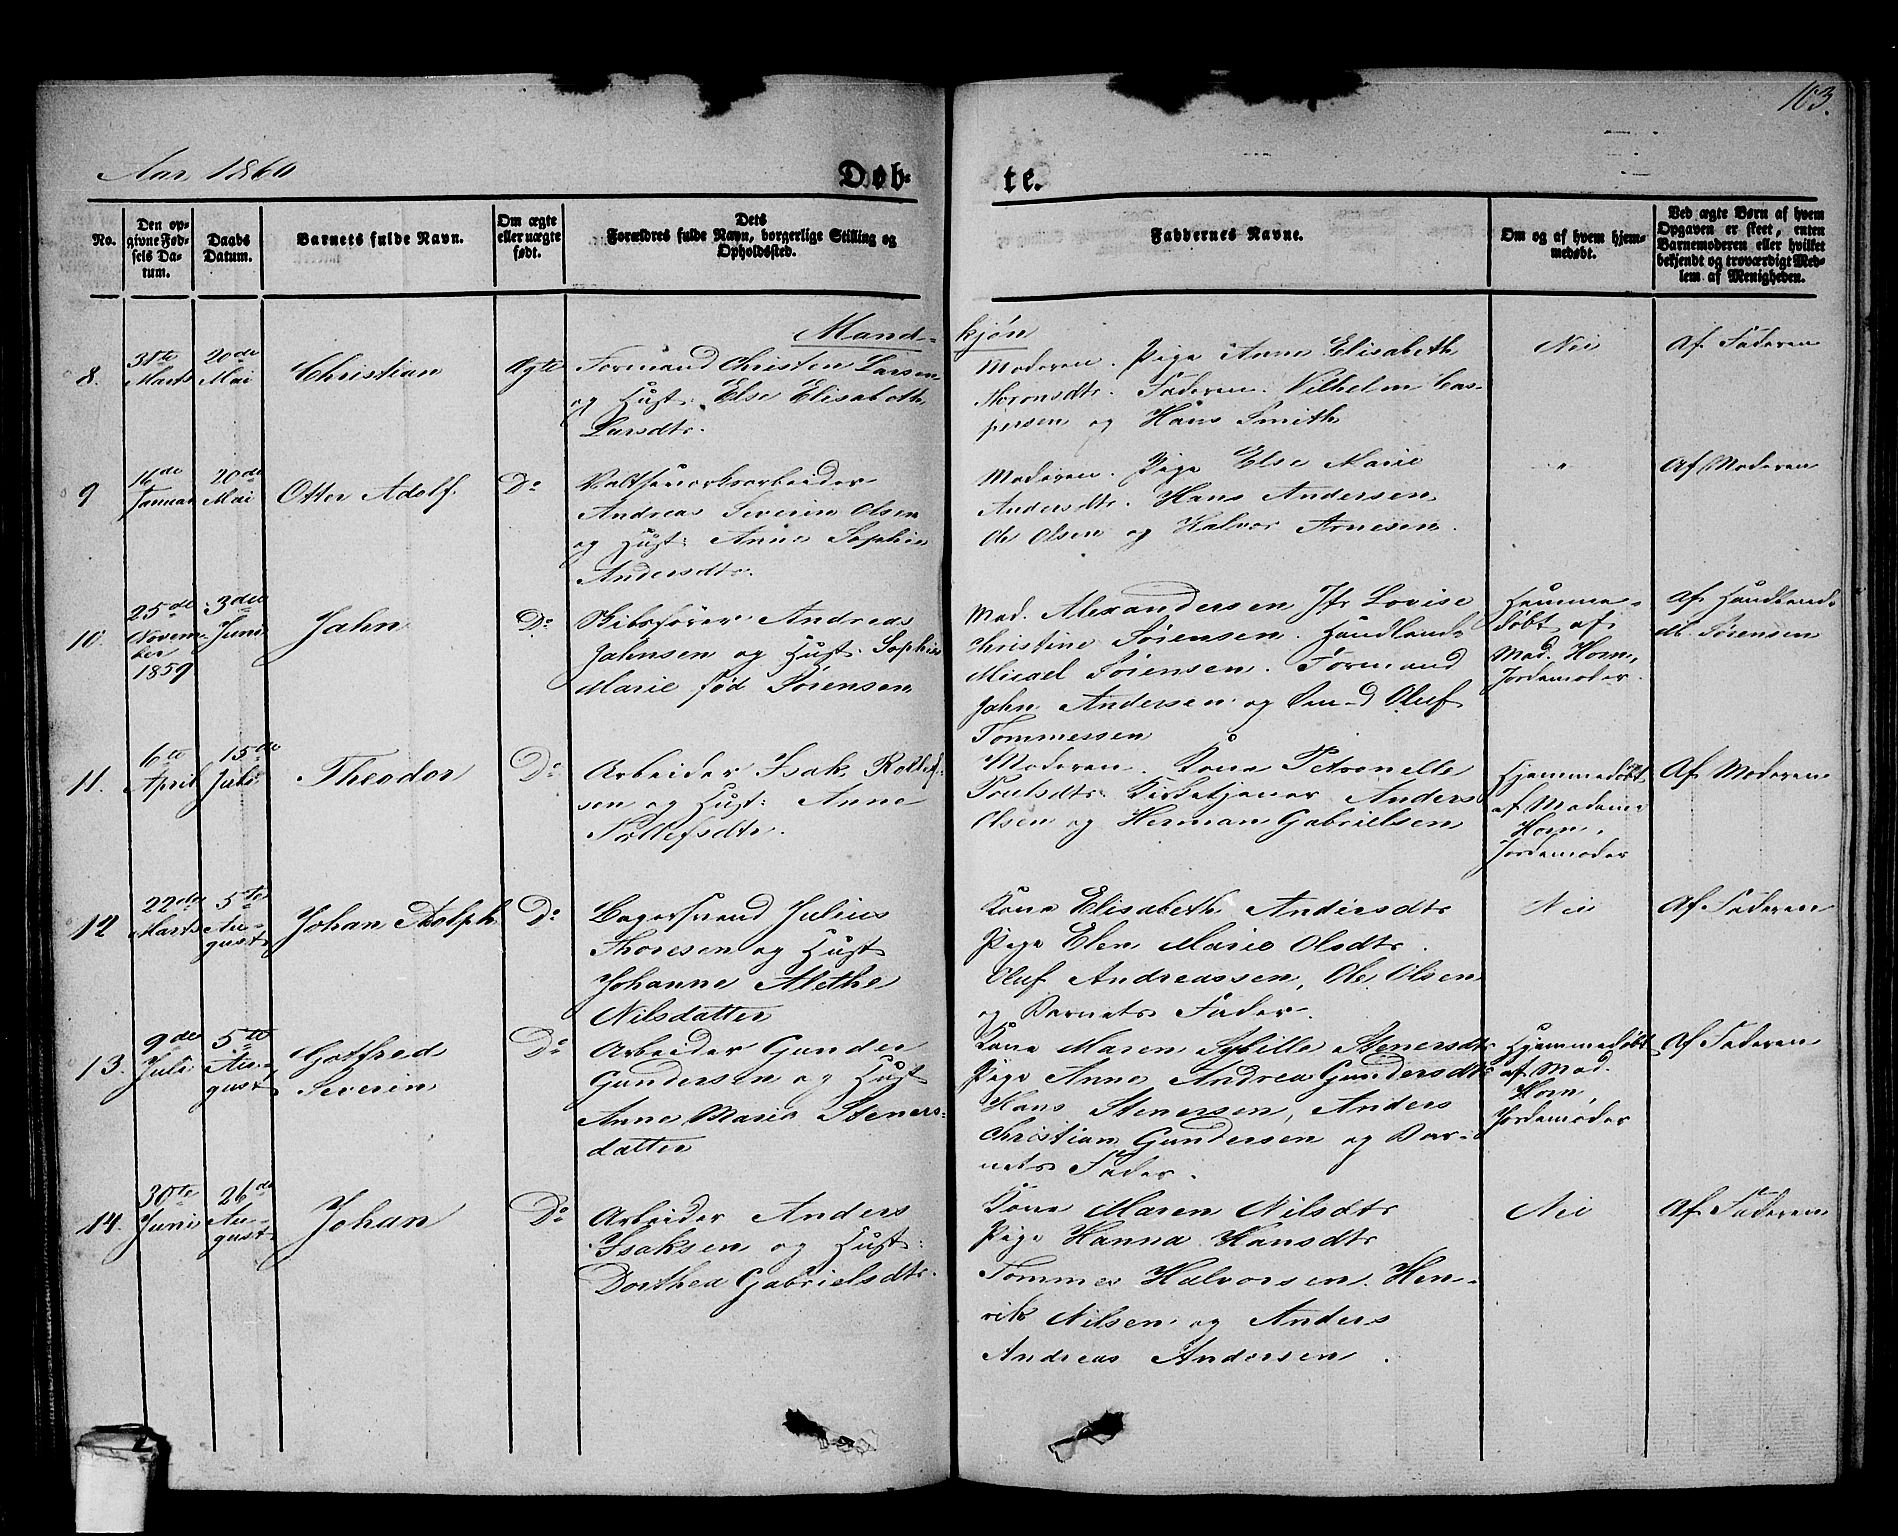 103.
Aar 1860
Døb-
te.
No.
Den op-
givne Fød-
sels Da-
tum.
Daabs
Datum.
Barnets fulde Navn.
Om ægte
eller uægte
født.
Dets
Forældres fulde Navn, borgerlige Stilling og
Opholdssted.
Faddernes Navne.
Om og af hvem hjem-
medøbt.
Ved ægte Børn af hvem
Opgaven er skeet, enten
Barnemoderen eller hvilket
bekjendt og troværdigt Med-
lem af Menigheden.
Mand-
kjøn
8.
31te
Marts
20de
Mai
Christian
Ægte
Formand Christen Larsen
og Hust: Else Elisabeth
Larsdtr.
Moderen. Pige Anne Elisabeth
Aronsdtr. Faderen. Vilhelm Cas-
persen og Hans Smith
Nei
Af Faderen
9
16de
Januar
20de
Mai
Otter Adolf.
Do
Andreas Severin Olsen
og Hust: Anne Sophie
Andersdtr.
Moderen. Pige Else Marie
Andersdtr. Hans Andersen
Ole Olsen og Halvor Arnesen.
"
Af Moderen
10.
25de
Novem-
ber
1859
3die
Juni
Jahn
Do
Skibsfører Andreas
Jahnsen og Hust: Sophie
Marie fød Sørensen
Mad. Alexandersen Jfr Lovise
Christine Sørensen. Handlende
Micael Sørensen. Formand
Jahn Andersen og Oluf
Tommessen
Hjemme-
døbt af
Mad. Horn,
Jordemoder.
Af Handlende
Sørensen
11.
6te
April
15de
Juli
Theodor
Do
Arbeider Isak Rollef-
sen og Hust: Anne
Rollefsdtr.
Moderen. Kone Petronelle
Poulsdtr. Kirketjener Anders
Olsen og Herman Gabrielsen
Hjemmedøbt
af Madame
Horn,
Jordemoder
Af Moderen
12
22de
Marts
5te
Au-
gust
Johan Adolph
Do
Julius
Thoresen og Hust
Johanne Alethe
Nilsdatter
Kone Elisabeth Andersdtr
Pige Elen Marie Olsdtr.
Oluf Andreassen, Ole Olsen
og Barnets Fader.
Nei
Af Faderen
13.
9de
Juli
5te
Au-
gust
Gotfred
Severin
Do
Arbeider Gunder
Gundersen og Hust
Anne Marie Steners-
datter
Kone Maren Sybille Stenersdtr
Pige Anne Andrea Gundersdtr
Hans Stenersen, Anders
Christian Gundersen og Bar-
nets Fader.
Hjemmedøbt
af Mad.
Horn,
Jordemoder
Af Faderen
14.
30te
Juni
26de
Au-
gust
Johan
Do
Arbeider Anders
Isaksen og Hust:
Dorthea Gabrielsdtr.
Kone Maren Nilsdtr
Pige Hanna Hansdtr
Tommes Halvorsen. Hen-
rik Nilsen og Anders
Andreas Andersen.
Nei
Af Faderen